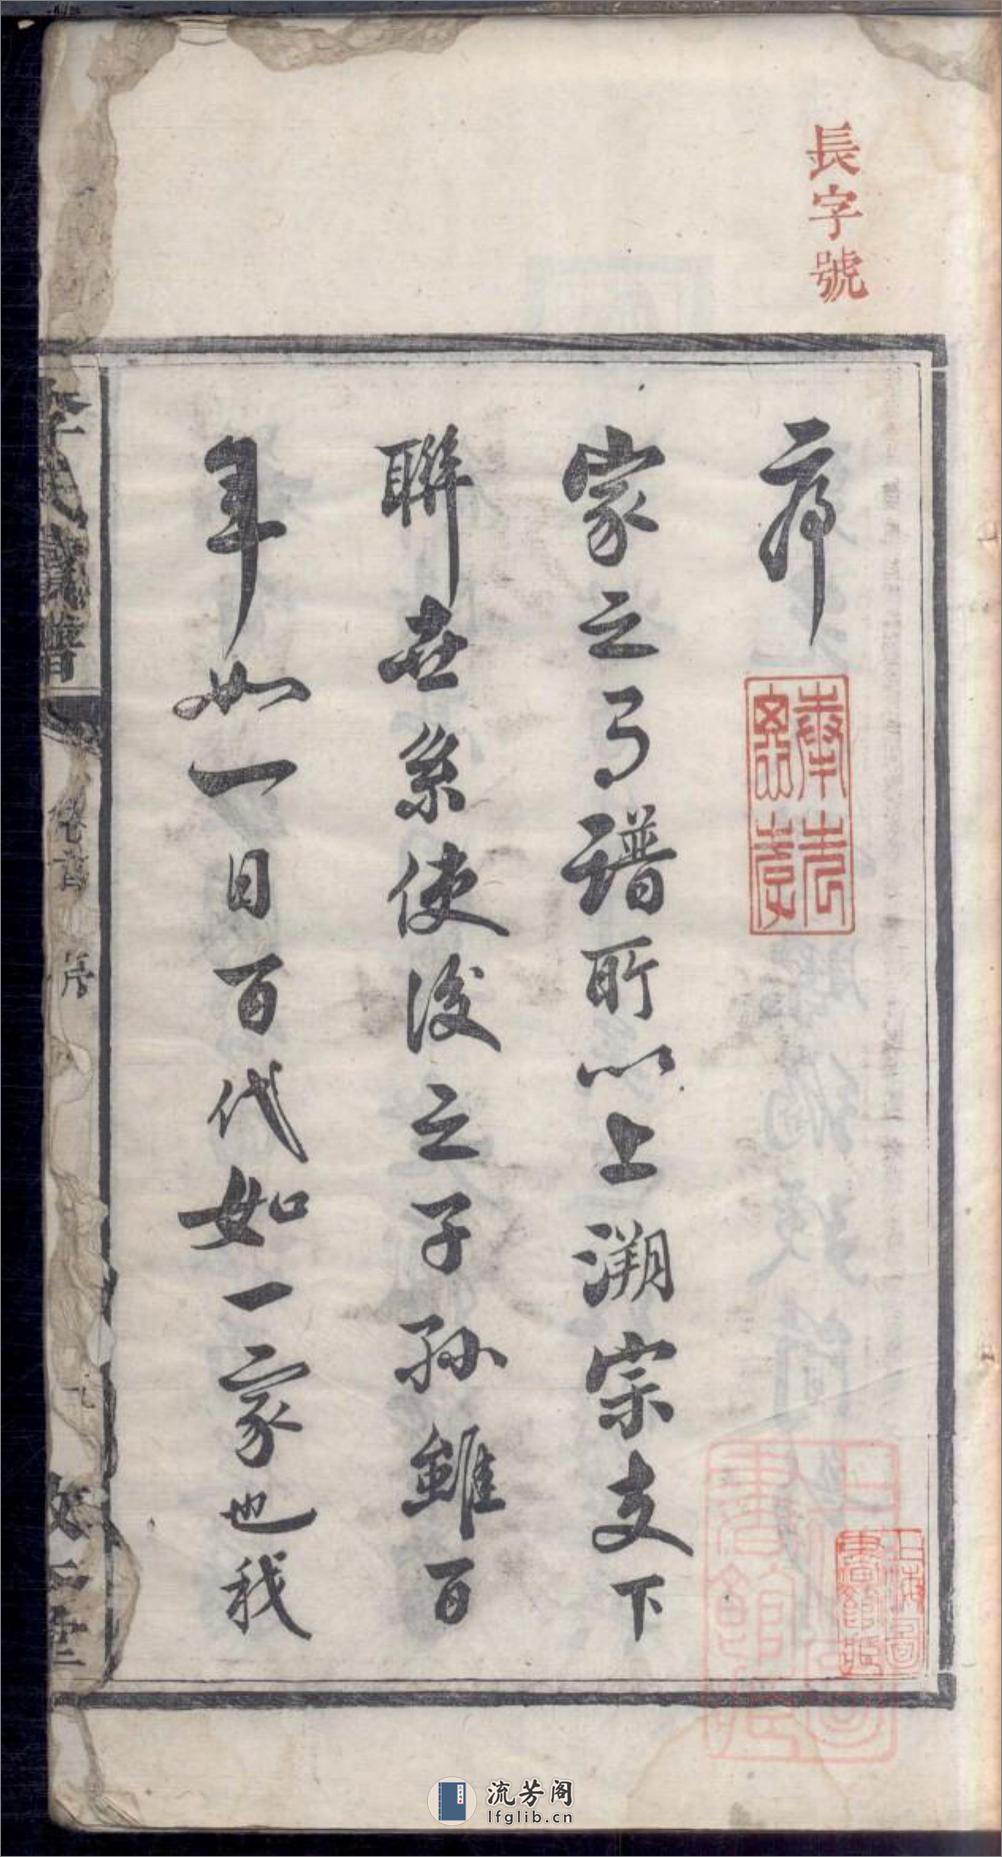 長字號
序
家之有譜所以上溯宗支下
聯世系使後之子孫雖百
年如一日百代如一家也我
李氏 譜
卷首
序
上海圖書館藏
流芳阁
lfglib.cn